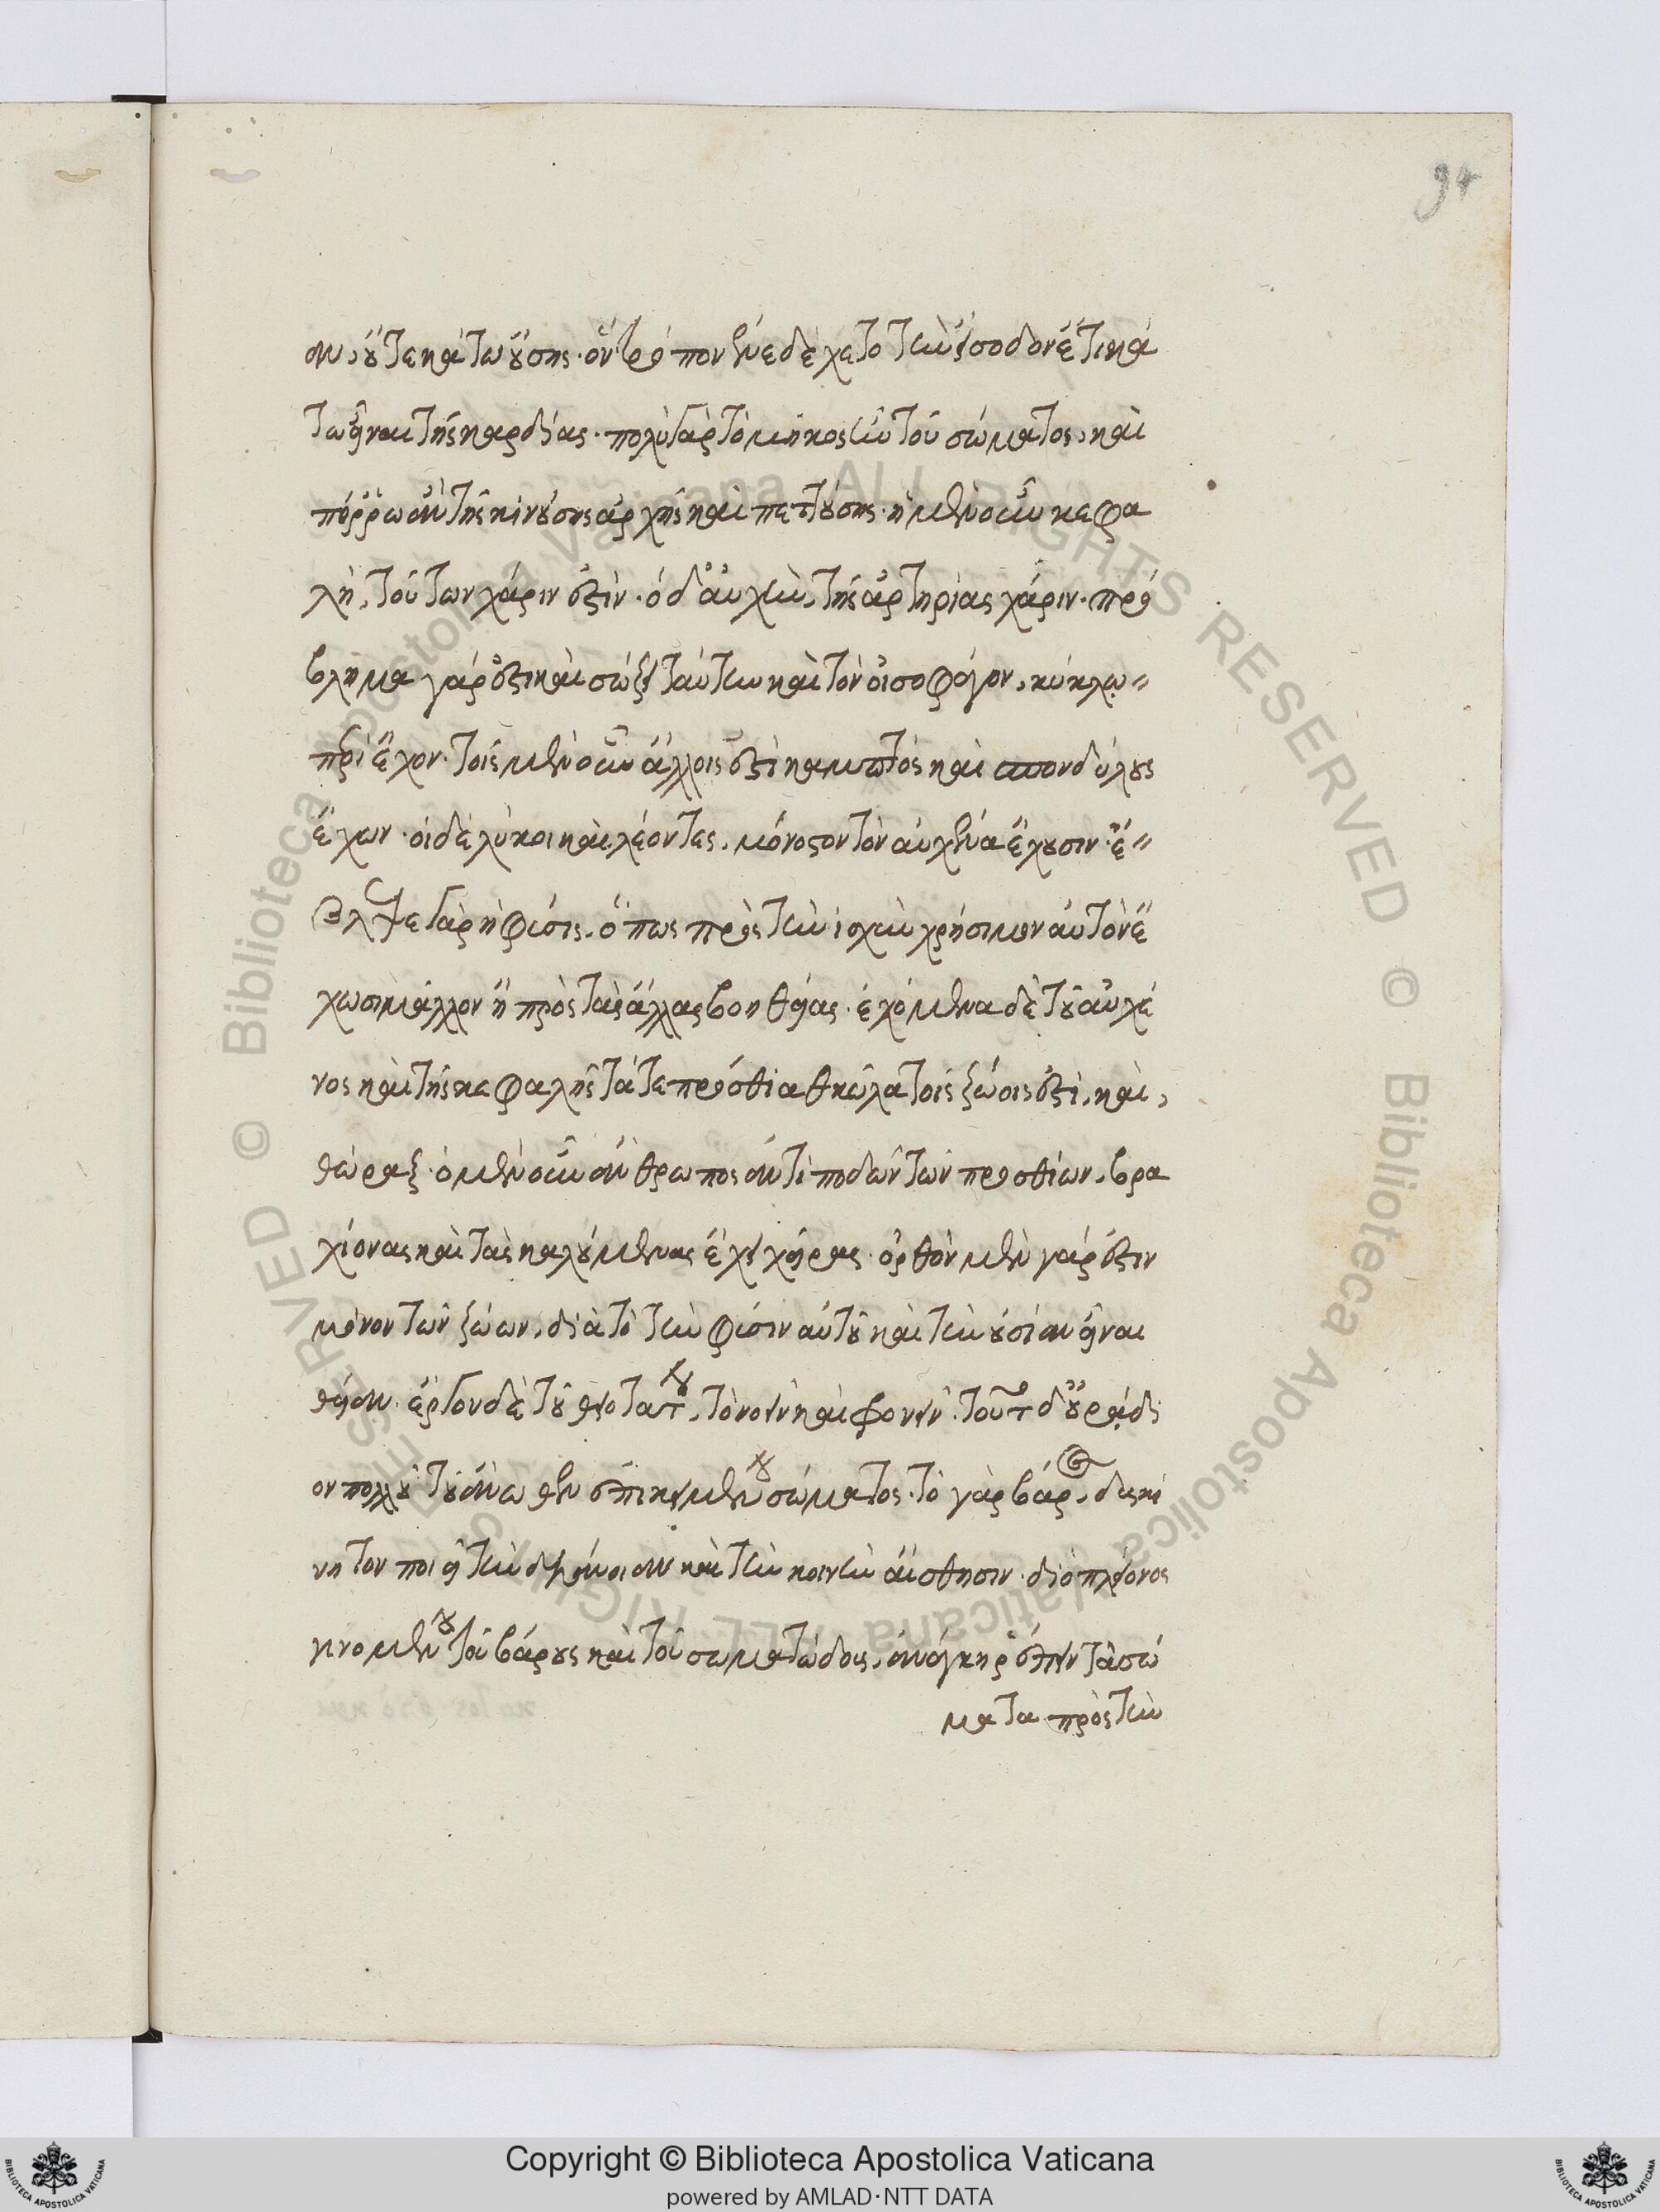 94
αν, οὔτε κάτω οὔσης. ὃν τρόπον ἐνεδέχετο τὴν εἴσοδον ἔτι κά
τω εἶναι τῆς καρδίας. πολὺ γὰρ τὸ μῆκος ἦν τοῦ σώματος, καὶ
πόρρω ἂν τῆς κινούσης ἀρχῆς καὶ πεττούσης. ἡ μὲν οὖν κεφα
λὴ, τούτων χάριν ἐστίν. ὁ δ' αὐχὴν, τῆς ἀρτηρίας χάριν. πρό
βλημα γάρ ἐστι καὶ σώζει ταύτην καὶ τὸν οἰσοφάγον, κύκλῳ
περιέχον. τοῖς μὲν οὖν ἄλλοις ἐστὶ καμπτὸς καὶ σπονδύλους
ἔχων. οἱ δὲ λύκοι καὶ λέοντες, μόνοστον τὸν αὐχένα ἔχουσιν. ἔ
βλεψε γὰρ ἡ φύσις, ὅπως πρὸς τὴν ἰσχὺν χρήσιμον αὐτὸν ἔ
χωσι μᾶλλον ἢ πρὸς τὰς ἄλλας βοηθείας. ἐχόμενα δὲ τοῦ αὐχέ
νος καὶ τῆς κεφαλῆς τά τε πρόσθια κῶλα τοῖς ζώοις ἐστὶ, καὶ,
θώραξ. ὁ μὲν οὖν ἄνθρωπος ἀντὶ ποδῶν τῶν προσθίων, βρα
χίονας καὶ τὰς καλουμένας ἔχει χεῖρας. ὀρθὸν μὲν γάρ ἐστιν
μόνον τῶν ζώων, διὰ τὸ τὴν φύσιν αὐτοῦ καὶ τὴν οὐσίαν εἶναι
θείαν. ἔργον δὲ τοῦ θειοτάτου, τὸ νοεῖν καὶ φρονεῖν. τοῦτο δ' οὐ ῥᾴδι
ον πολλοῦ τοῦ ἄνωθεν ἐπικειμένου σώματος. τὸ γὰρ βάρος, δυσκί
νητον ποιεῖ τὴν διάνοιαν καὶ τὴν κοινὴν αἴσθησιν. διὸ πλείονος
γινομένου τοῦ βάρους καὶ τοῦ σωματώδους, ἀνάγκη ῥέπειν τὰ σώ
ματα πρὸς τὴν
Copyright © Biblioteca Apostolica Vaticana
powered by AMLAD·NTT DATA